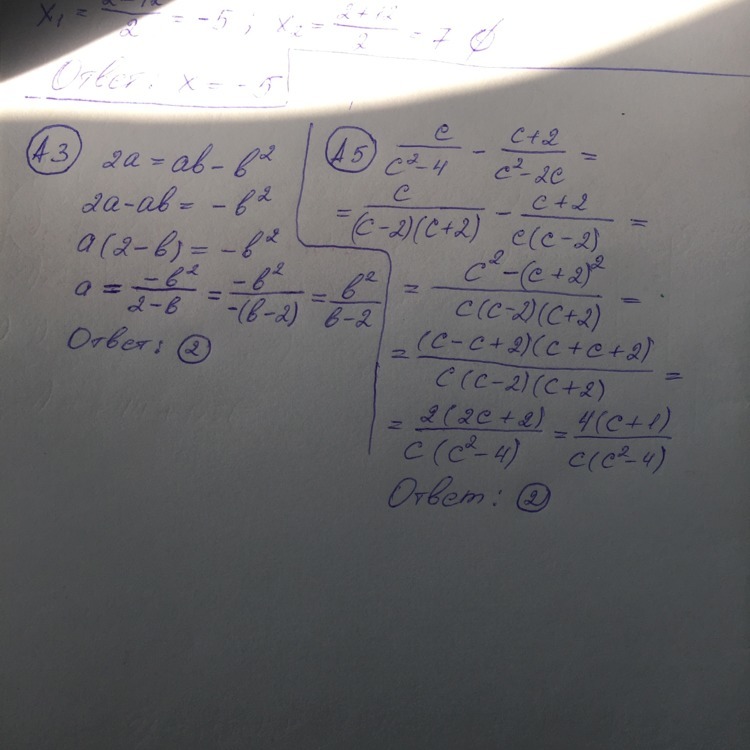 x₁ = (2-12)/2 = -5; x₂ = (2+12)/2 = 7 ∅
Ответ: x = -5
А3
2a = ab - b²
2a - ab = -b²
a(2-b) = -b²
a = -b²/(2-b) = -b²/-(b-2) = b²/(b-2)
Ответ: ②
А5 c/(c²-4) - (c+2)/(c²-2c) =
= c/((c-2)(c+2)) - (c+2)/(c(c-2)) =
= (c²-(c+2)²)/(c(c-2)(c+2)) =
= ((c-c+2)(c+c+2))/(c(c-2)(c+2)) =
= 2(2c+2)/(c(c²-4)) = 4(c+1)/(c(c²-4))
Ответ: ②